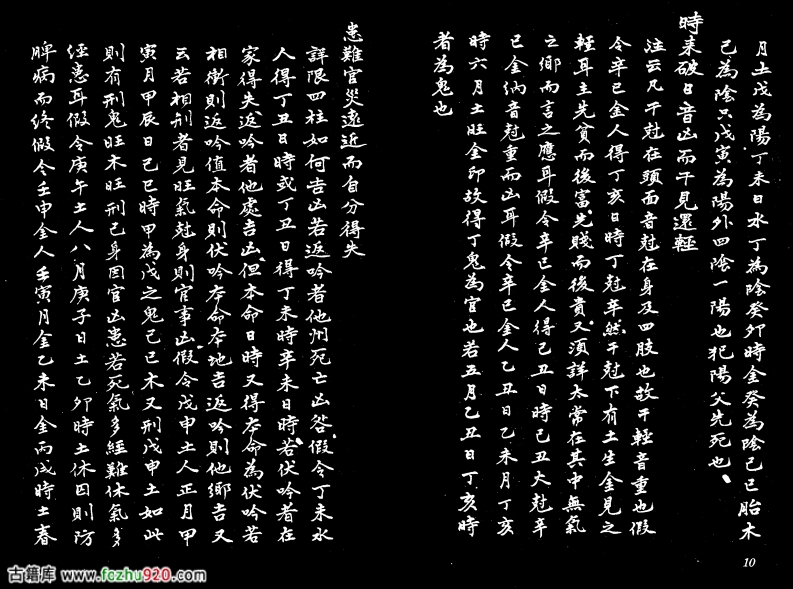 月土戊為陽丁未日水丁為陰癸卯時金癸為陰己巳胎木
己為陰只戊寅為陽外四陰一陽也犯陽父先死也
時來破日音凶而干見還輕
注云凡干尅在頭面音尅在身及四肢也故干輕音重也假
令辛巳金人得丁亥日時丁尅辛然干尅下有土生金見之
輕耳主先貧而後富先賤而後貴又須詳太常在其中無氣
之鄉而言之應耳假令辛巳金人得己丑日時己丑火尅辛
巳金納音尅重而凶耳假令辛巳金人乙丑日乙未月丁亥
時六月土旺金卯故得丁鬼為官也若五月乙丑日丁亥時
者為鬼也
患難官災遠近而自分得失
詳限四柱如何吉凶若返吟者他州死亡凶咎假令丁未水
人得丁丑日時或丁丑日得丁未時辛未日時若伏吟者在
家得失返吟者他處吉凶但本命日時又得本命為伏吟若
相衝則返吟值本命則伏吟本命本地吉返吟則他鄉吉又
云若相刑者見旺氣尅身則官事凶假令戊申土人正月甲
寅月甲辰日己巳時甲為戊之鬼己巳木又刑戊申土如此
則有刑鬼旺木旺刑己身因官凶患若死氣多經難休氣多
經患耳假令庚午土人八月庚子日土乙卯時土休囚則防
脾病而終假令壬申金人壬寅月金乙未日金丙戌時土春
10
古籍库 www.fozhu920.com